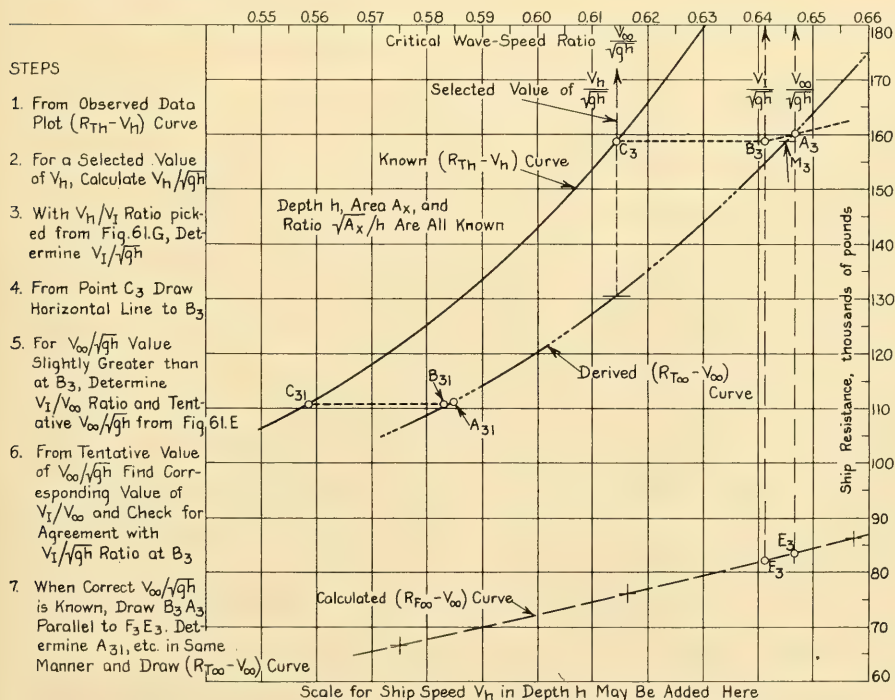 0.55 0.56 0.57 0.58 0.59 0.60 0.61 0.62 0.63 0.64 0.65 0.66
STEPS
1. From Observed Data
Plot (R_Th-V_h) Curve
2. For a Selected Value
of V_h, Calculate V_h/√gh
3. With V_h/V_I Ratio pick-
ed from Fig.61.G, Det-
ermine V_I/√gh
4. From Point C3 Draw
Horizontal Line to B3
5. For V∞/√gh Value
Slightly Greater than
at B3, Determine
V_I/V∞ Ratio and Tent-
ative V∞/√gh from Fig.61.E
6. From Tentative Value
of V∞/√gh Find Corr-
esponding Value of
V_I/V∞ and Check for
Agreement with
V_I/√gh Ratio at B3
7. When Correct V∞/√gh
is Known, Draw B3A3
Parallel to F3E3. Det-
ermine A31, etc. in Same
Manner and Draw (R_T∞-V∞) Curve
Critical Wave-Speed Ratio V∞/√gh
Selected Value of V_h/√gh
V_I/√gh
V∞/√gh
Known (R_Th-V_h) Curve
C3
B3
A3
M3
Depth h, Area A_X, and
Ratio √A_X/h Are All Known
C31
B31
A31
Derived (R_T∞-V∞)
Curve
Ship Resistance, thousands of pounds
E3
F3
Calculated (R_F∞-V∞) Curve
180
170
160
150
140
130
120
110
100
90
80
70
60
Scale for Ship Speed V_h in Depth h May Be Added Here